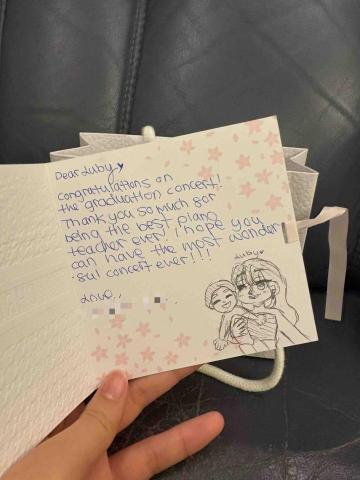 Dear Luby
congratulations on
the graduation concert!
Thank you so much for
being the best piano
teacher ever! I hope you
can have the most wonder
ful concert ever!!!
Love,
Luby